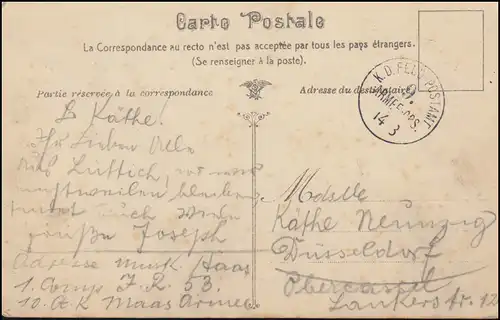 Carte Postale
La Correspondance au recto n'est pas acceptée par tous les pays étrangers.
(Se renseigner à la poste).
Partie réservée à la correspondance
Adresse du destinataire
K. D. FELD-POSTAMT
9.
ARMEE-CPS.
14 3
L Käthe!
Ihr Lieben Alle
aus Lüttich, wo wir
bleiben
Grüße Joseph
Adresse Musk Haas
1. Comp I. R. 53.
10. A. K Maas Armee
Mdselle
Käthe Neunzig
Düsseldorf
Obercassel
Lankerstr. 12